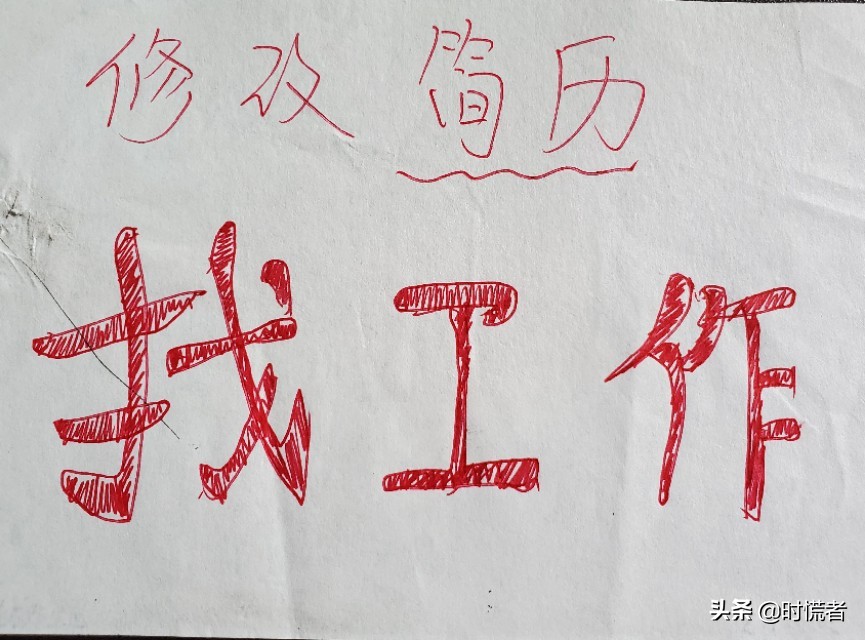 修改简历
找工作
头条 @时慌者